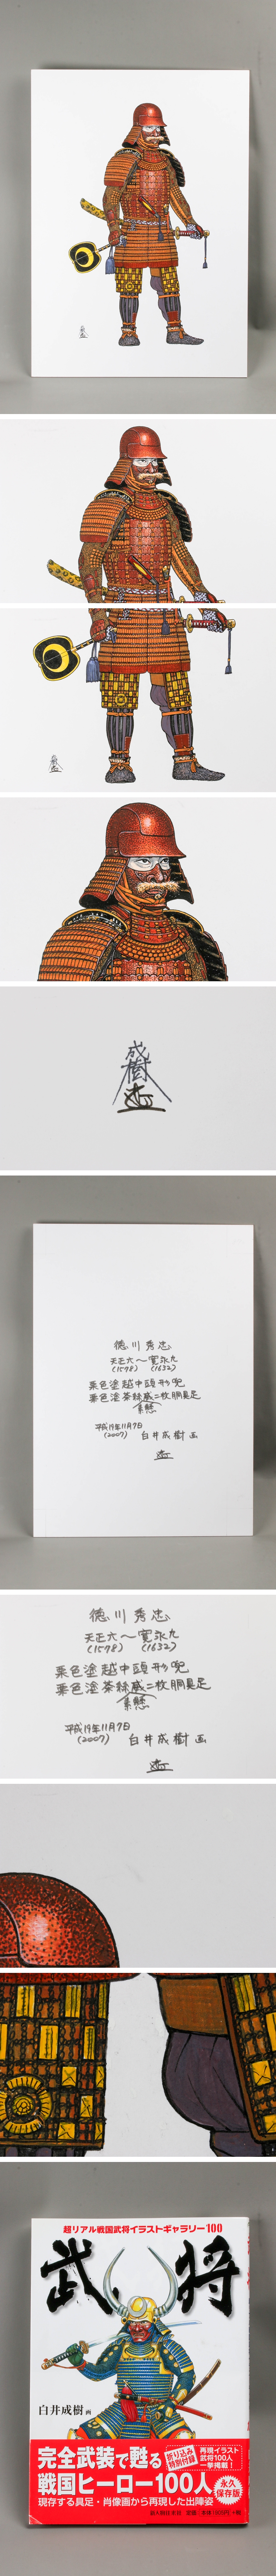 成樹
成樹
成樹
徳川秀忠
天正六〜寛永九
(1578) (1632)
栗色塗越中頭形兜
栗色塗茶絲威二枚胴具足
素懸
平成19年11月7日
(2007) 白井成樹 画
徳川秀忠
天正六〜寛永九
(1578) (1632)
栗色塗越中頭形兜
栗色塗茶絲威二枚胴具足
素懸
平成19年11月7日
(2007) 白井成樹 画
超リアル戦国武将イラストギャラリー100
武将
白井成樹 画
完全武装で甦る
戦国ヒーロー100人
現存する具足・肖像画から再現した出陣姿
折り込み
特別付録
再現イラスト
武将100人
一挙掲載!
永久
保存版